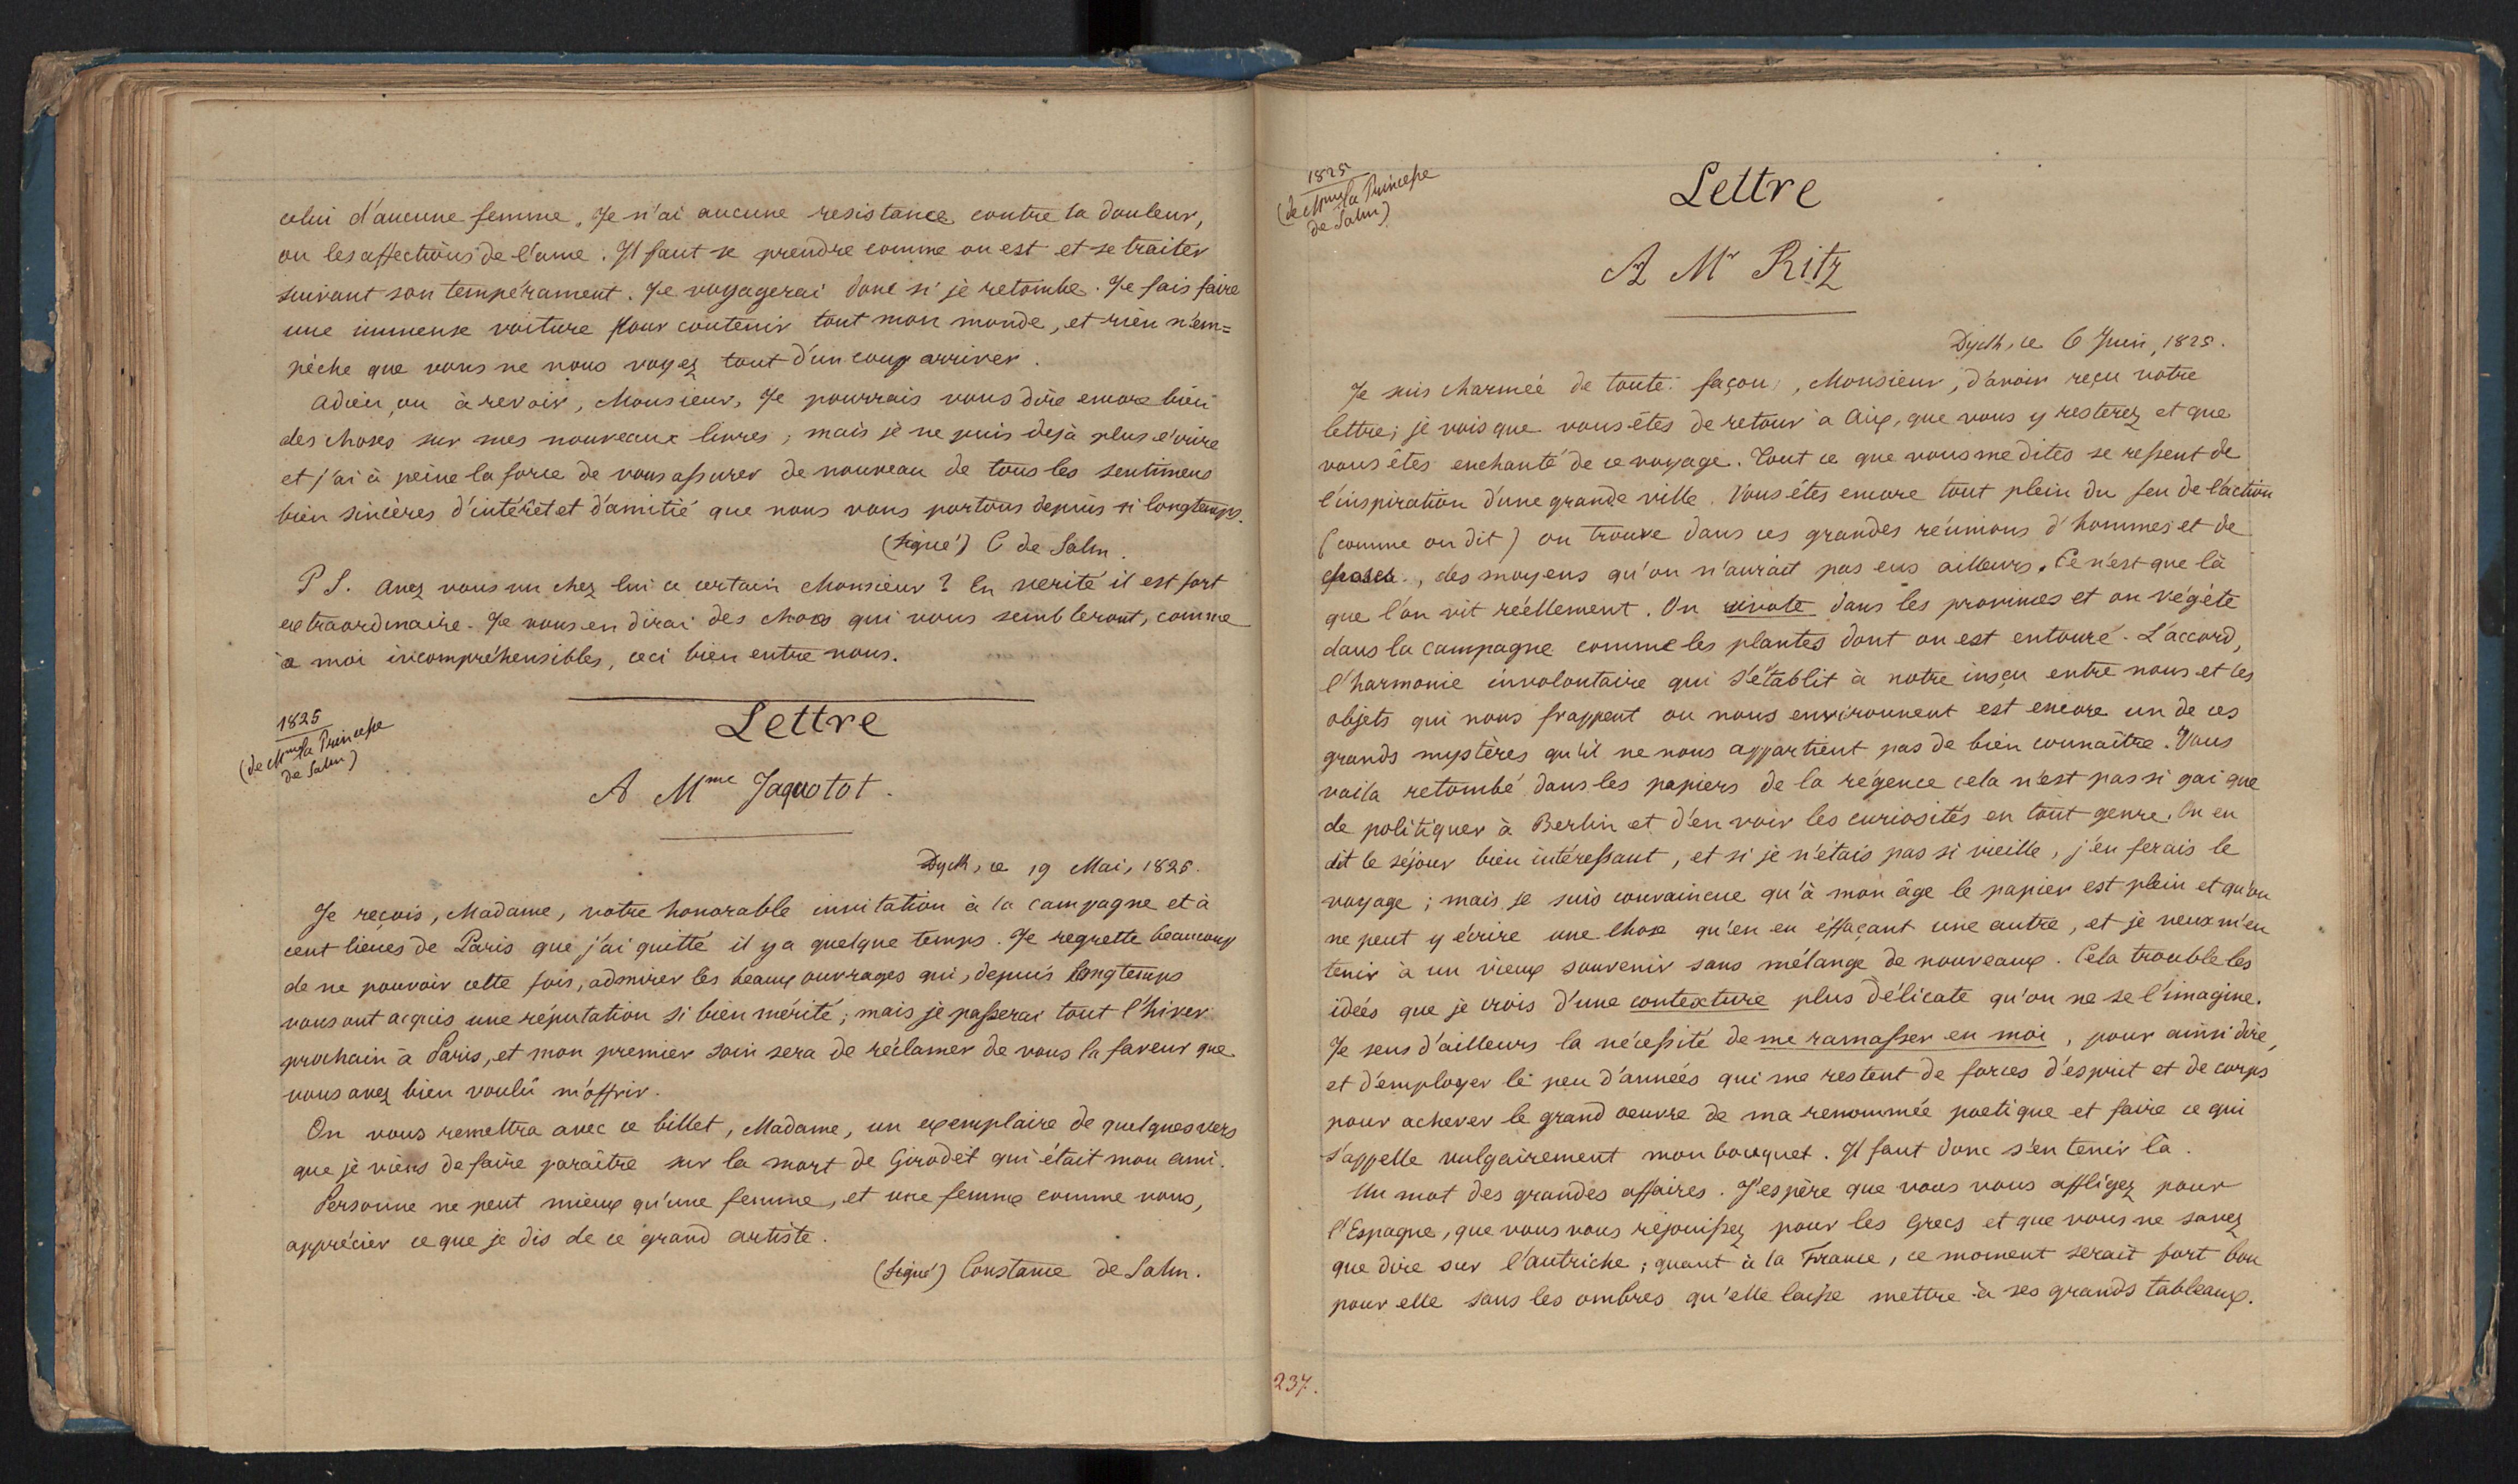 celui d'aucune femme. Je n'ai aucune resistance contre la douleur,
ou les affections de l'ame. Il faut se prendre comme on est et se traiter
suivant son tempérament. Je voyagerai donc si je retombe. Je fais faire
une immense voiture pour contenir tout mon monde, et rien n'em=
pêche que vous ne nous voyez tout d'un coup arriver.
Adieu, ou à revoir, Monsieur, Je pourrais vous dire encore bien
des choses sur mes nouveaux livres, mais je ne puis déjà plus écrire
et j'ai à peine la force de vous assurer de nouveau de tous les sentimens
bien sincères d'intérêt et d'amitié que nous vous portons depuis si longtemps.
(Signé) C de Salm.
P S. Avez vous vu chez lui ce certain Monsieur? En verité il est fort
extraordinaire. Je vous en dirai des choses qui vous sembleront, comme
à moi incompréhensibles, ceci bien entre nous.
1825
(de Mme la Princesse
de Salm)
Lettre
A Mme Jaquotot.
Dyck, ce 19 Mai, 1825.
Je reçois, Madame, votre honorable invitation à la campagne et à
cent lieues de Paris que j'ai quitté il y a quelque temps. Je regrette beaucoup
de ne pouvoir cette fois, admirer les beaux ouvrages qui, depuis longtemps
vous ont acquis une réputation si bien mérité; mais je passerai tout l'hiver
prochain à Paris, et mon premier soin sera de réclamer de vous la faveur que
vous avez bien voulû m'offrir.
On vous remettra avec ce billet, Madame, un exemplaire de quelques vers
que je viens de faire paraître sur la mort de Girodet qui était mon ami.
Personne ne peut mieux qu'une femme, et une femme comme vous,
apprécier ce que je dis de ce grand artiste.
(Signé) Constance de Salm.
1825
(de Mme la Princesse
de Salm)
Lettre
A Mr Ritz
Dyck, ce 6 Juin, 1825.
Je suis charmée de toute façon, Monsieur, d'avoir reçu votre
lettre; je vois que vous êtes de retour à Aix, que vous y resterez et que
vous êtes enchanté de ce voyage. Tout ce que vous me dites se ressent de
l'inspiration d'une grande ville. Vous êtes encore tout plein du feu de l'action
(comme on dit) on trouve dans ces grandes réunions d'hommes et de
choses, des moyens qu'on n'aurait pas eus ailleurs. Ce n'est que là
que l'on vit réellement. On vivote dans les provinces et on végète
dans la campagne comme les plantes dont on est entouré. L'accord,
l'harmonie involontaire qui s'établit à notre insçu entre nous et les
objets qui nous frappent ou nous environnent est encore un de ces
grands mystères qu'il ne nous appartient pas de bien connaître. Vous
voila retombé dans les papiers de la régence cela n'est pas si gai que
de politiquer à Berlin et d'en voir les curiosités en tout genre. On en
dit le séjour bien intéressant, et si je n'étais pas si vieille, j'en ferais le
voyage; mais je suis convaincue qu'à mon âge le papier est plein et qu'on
ne peut y écrire une chose qu'en en éffaçant une autre, et je veux m'en
tenir à un vieux souvenir sans mélange de nouveaux. Cela trouble les
idées que je crois d'une contexture plus délicate qu'on ne se l'imagine.
Je sens d'ailleurs la nécessité de me ramasser en moi, pour ainsi dire,
et d'employer le peu d'années qui me restent de forces d'esprit et de corps
pour achever le grand oeuvre de ma renommée poetique et faire ce qui
s'appelle vulgairement mon bouquet. Il faut donc s'en tenir là.
Un mot des grandes affaires. J'espère que vous vous affligez pour
l'Espagne, que vous vous réjouissez pour les Grecs et que vous ne savez
que dire sur l'autriche; quant à la France, ce moment serait fort bon
pour elle sans les ombres qu'elle laisse mettre à ses grands tableaux.
237.